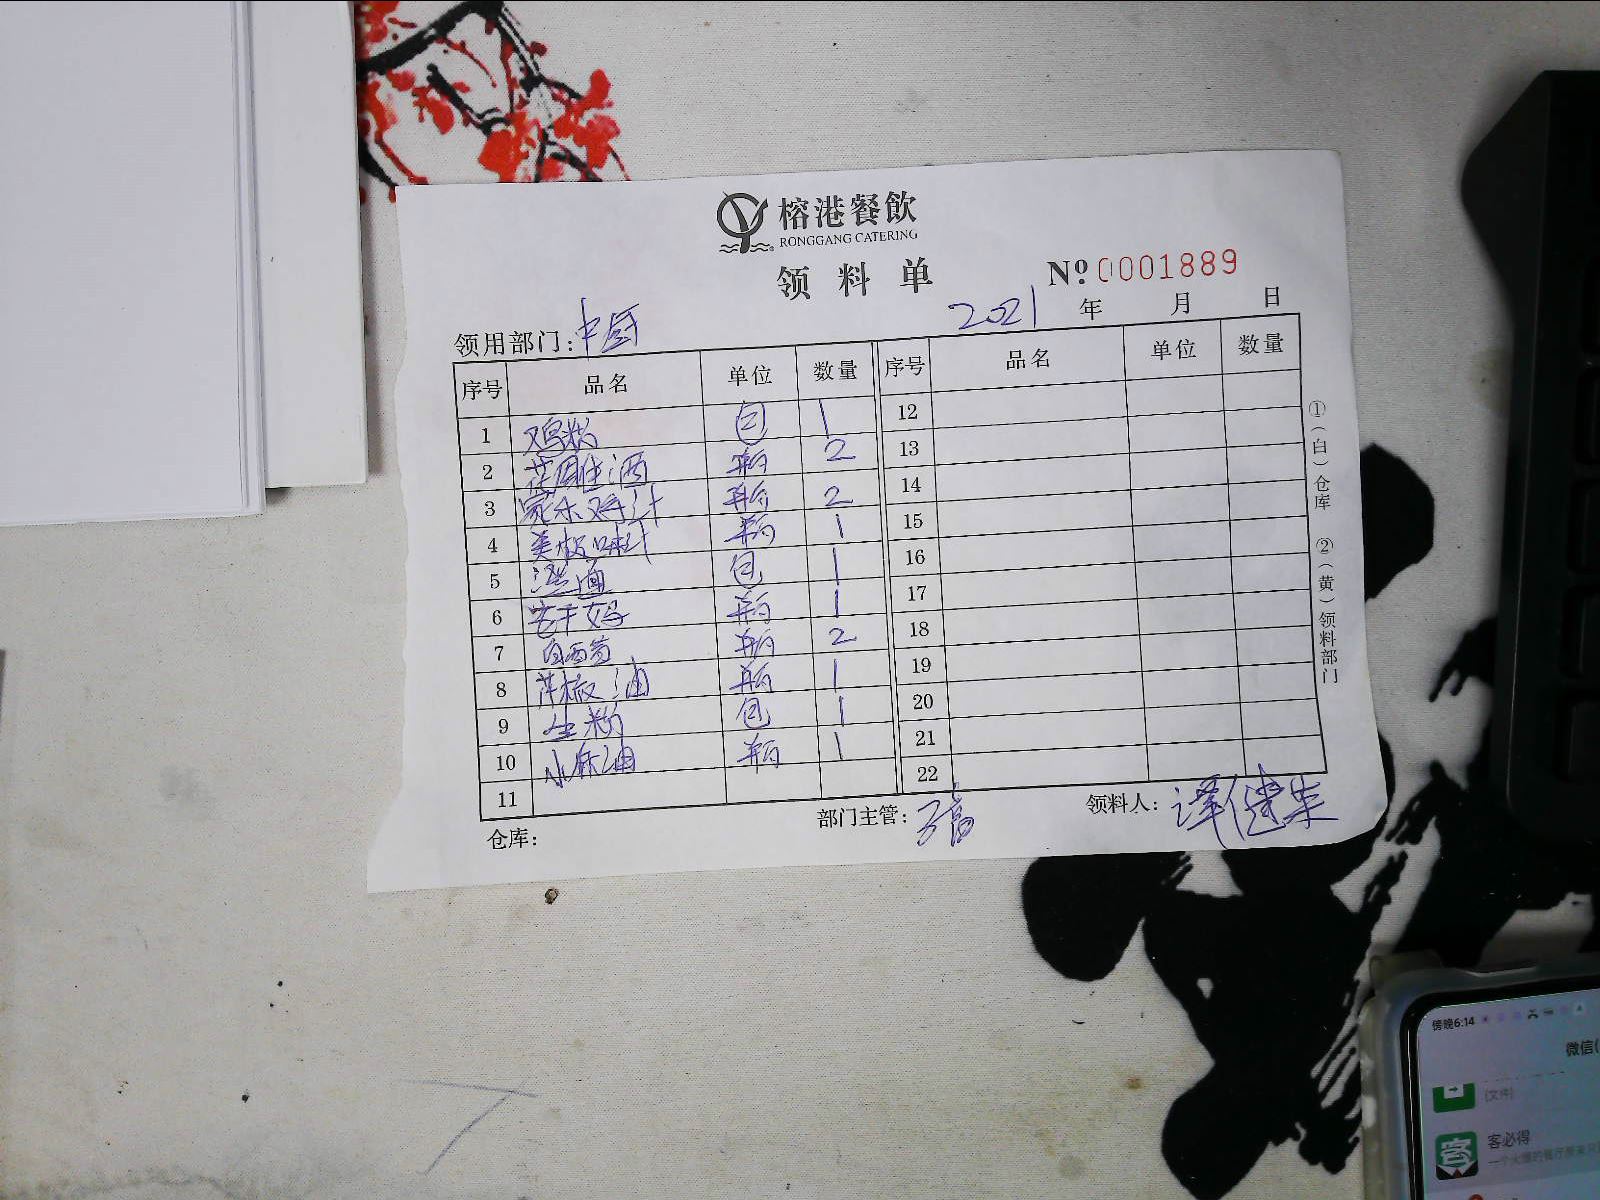 榕港餐飲
RONGGANG CATERING
领料单
Nº 0001889
领用部门：中厨 2021年 月 日
序号 品名 单位 数量 序号 品名 单位 数量
1 鸡粉 包 1 12
2 花雕酒 瓶 2 13
3 家乐鸡汁 瓶 2 14
4 美极鲜味汁 瓶 1 15
5 澄面 包 1 16
6 老干妈 瓶 1 17
7 白西 瓶 2 18
8 花椒油 瓶 1 19
9 生粉 包 1 20
10 小麻油 瓶 1 21
11 22
仓库： 部门主管： 领料人：谭健
①（白）仓库 ②（黄）领料部门
傍晚6:14
微信(
(文件)
客必得